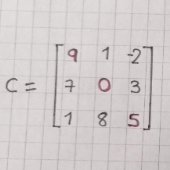 C = [ 9 1 -2
7 0 3
1 8 5 ]